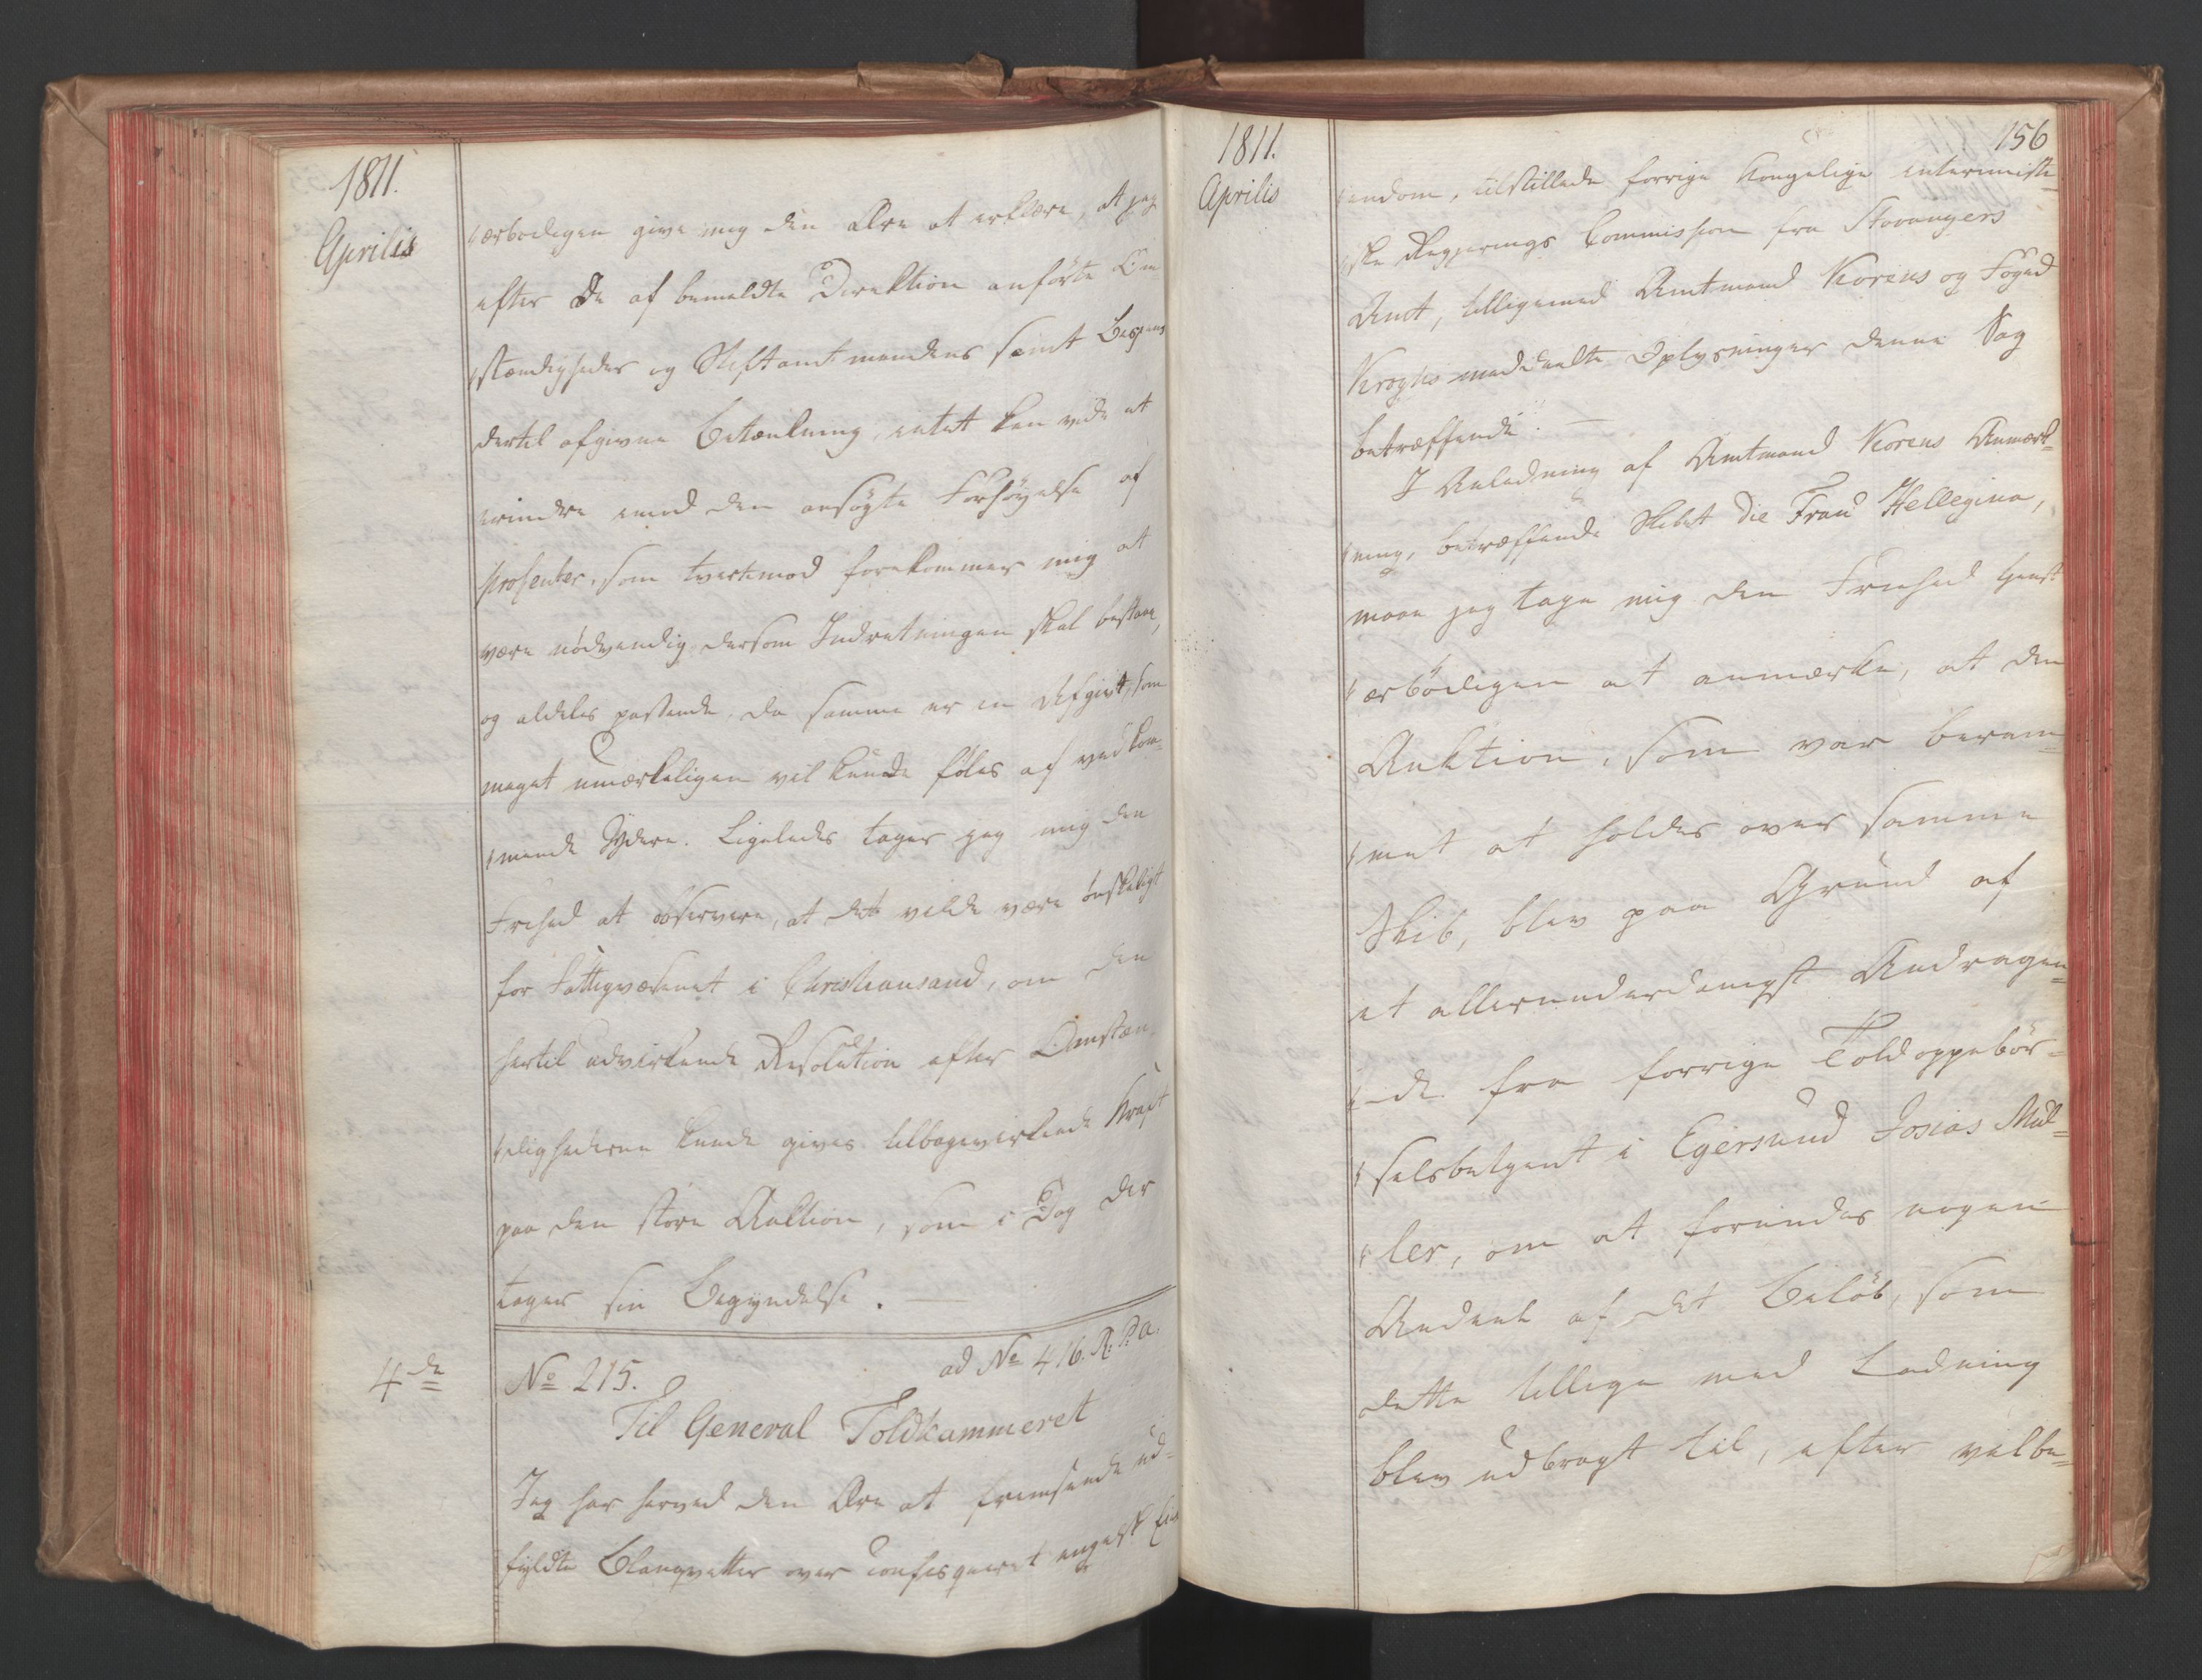 1811.
Aprilis
ærbødigen give mig den Ære at erklære, at jeg
efter de af bemeldte Direktion anførte Om
stændigheder og Stiftamtmandens samt Bispens
dertil afgivne Betænkning, intet kan vide at
erindre imod den ansøgte Forhøyelse af
Prosenter, som tvertimod forekommer mig at
være nødvendig dersom Indretningen skal bestaae,
og aldeles passende, da samme er en Afgivt, som
meget umærkeligen vil kunde føles af vedkom-
mende Ydere. Ligeledes tager jeg mig den
Frihed at observere, at det vilde være ønskeligt
for Fattigvæsenet i Christiansand, om den
hertil udvirkende Resolution efter Omstæn-
dighederne kunde gives tilbagevirkende Kraft
paa den store Auktion, som i Dag der
tager sin Begyndelse. —
4de
No 215.
ad No 416. R. P. a.
Til General Toldkammeret
Jeg har herved den Ære at fremsende ud-
fyldte Blanqvetter over confisqveret engelsk Ei
1811.
Aprilis
156
endom, tilstillede forrige Kongelige interimisti-
ske Regjerings Commission fra Stavangers
Amt, tilligemed Amtmand Korens og Foged
Kroghs meddeelte Oplysninger denne Sag
betræffende. —
I Anledning af Amtmand Korens Anmærk-
ning, betræffende Skibet die Frau Hellegina,
maae jeg tage mig den Friehed tjenst
ærbödigen at anmærke, at den
Auktion, som var beram-
met at holdes over samme
Skib, blev paa Grund af
et allerunderdanigst Andragen-
de fra forrige Toldoppebör-
selsbetjent i Egersund Josias Mül-
ler, om at forundes nogen
Andeel af det Belöb, som
dette tillige med Ladning
blev udbragt til, efter velbe-